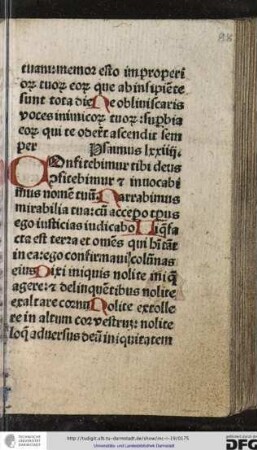 88
tuam: memor esto improperi
oꝝ tuoꝝ eoꝝ que ab insipiēte
sunt tota die Ne obliviscaris
voces inimicoꝝ tuoꝝ: suꝑbia
eoꝝ qui te oderūt ascendit sem
per Psalmus lxxiiij.
COnfitebimur tibi deus
ꝯfitebimur ⁊ invocabi
mus nomē tuū Narrabimus
mirabilia tua: cū accepo tꝑus
ego iusticias iudicabo Liq̄fa
cta est terra et om̄es qui hītāt
in ea: ego confirmavi colūnas
eius Dixi iniquis nolite iniq̄
agere: ⁊ delinquētibus nolite
exaltare cornu Nolite extolle
re in altum cor vestruꝫ: nolite
loq̄ adversus deū iniquitatem
TECHNISCHE
UNIVERSITÄT
DARMSTADT
http://tudigit.ulb.tu-darmstadt.de/show/inc-i-19/0175
Universitäts- und Landesbibliothek Darmstadt
DFG